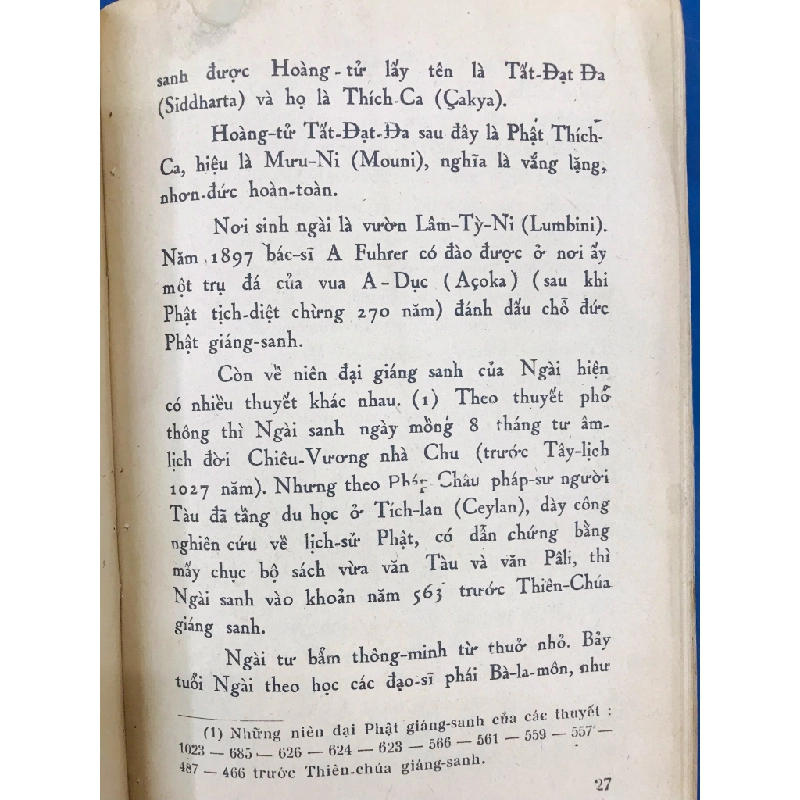 sanh được Hoàng-tử lấy tên là Tất-Đạt Đa
(Siddharta) và họ là Thích-Ca (Çakya).
Hoàng-tử Tất-Đạt-Đa sau đây là Phật Thích-
Ca, hiệu là Mưu-Ni (Mouni), nghĩa là vắng lặng,
nhơn-đức hoàn-toàn.
Nơi sinh ngài là vườn Lâm-Tỳ-Ni (Lumbini).
Năm 1897 bác-sĩ A Fuhrer có đào được ở nơi ấy
một trụ đá của vua A-Dục (Açoka) (sau khi
Phật tịch-diệt chừng 270 năm) đánh dấu chỗ đức
Phật giáng-sanh.
Còn về niên đại giáng sanh của Ngài hiện
có nhiều thuyết khác nhau. (1) Theo thuyết phổ
thông thì Ngài sanh ngày mồng 8 tháng tư âm-
lịch đời Chiêu-Vương nhà Chu (trước Tây-lịch
1027 năm). Nhưng theo Pháp Châu pháp-sư người
Tàu đã tằng du học ở Tích-lan (Ceylan), dày công
nghiên cứu về lịch-sử Phật, có dẫn chứng bằng
mấy chục bộ sách vừa văn Tàu và văn Pâli, thì
Ngài sanh vào khoản năm 563 trước Thiên-Chúa
giáng sanh.
Ngài tư bẩm thông-minh từ thuở nhỏ. Bảy
tuổi Ngài theo học các đạo-sĩ phái Bà-la-môn, như
(1) Những niên đại Phật giáng-sanh của các thuyết :
1023 — 685 — 626 — 624 — 623 — 566 — 561 — 559 — 557 —
487 — 466 trước Thiên-chúa giáng-sanh.
27